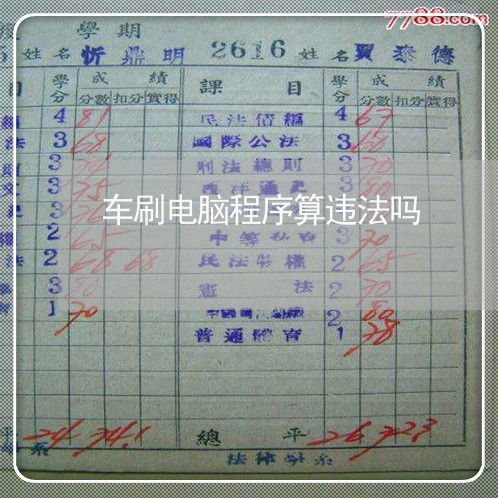 7788.com
學期
5 姓名 忻鼎明 2616 姓名 賈泰德
目 學分 成績 課目 學分 成績
分數 扣分 實得 分數 扣分 實得
4 81 民法債編 4 67
法 3 68 國際公法 3 60
3 刑法總則 3 70
3 75 西洋通史 3 80
車刷电脑程序算违法吗
2 65 3 70
法 2 68 68 民法物權 2 65
3 80 憲法 2 70
1 70 2 80
普通體育 1 78
平 24 74.1 總平 26 72.3
系 法律學系